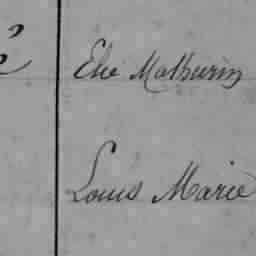 Elie Mathurin
Louis Marie